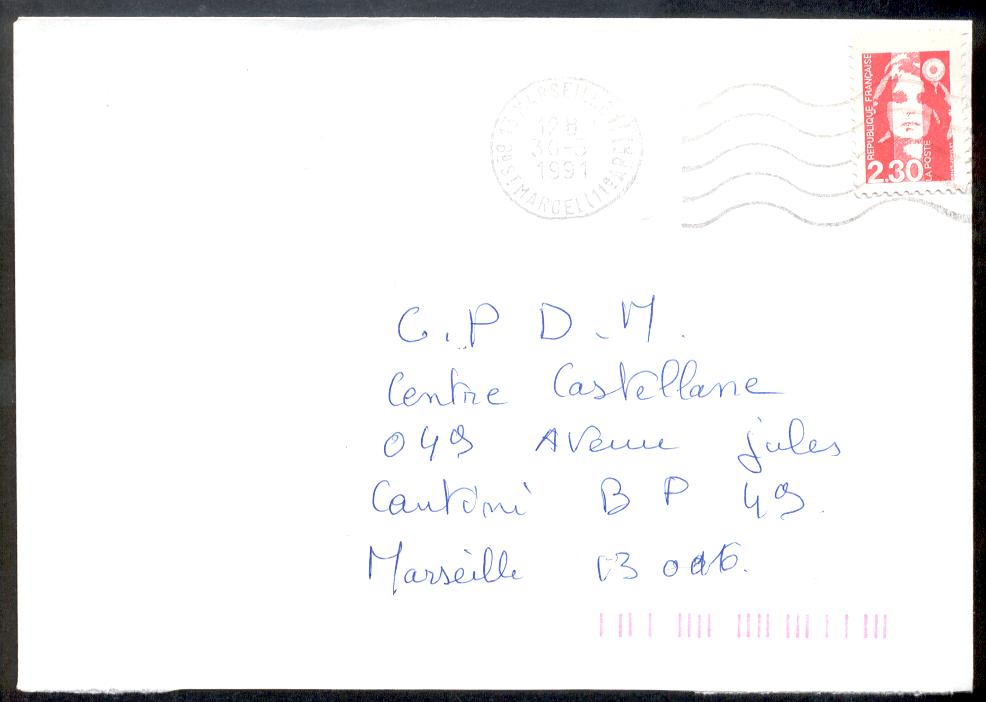 13 MARSEILLE
12H
30-
1991
Bd St MARCEL (11e ARR)
REPUBLIQUE FRANÇAISE
LA POSTE
2,30
C.P D.M.
Centre Castellane
049 Avenue jules
Cantini B P 49.
Marseille 13006.